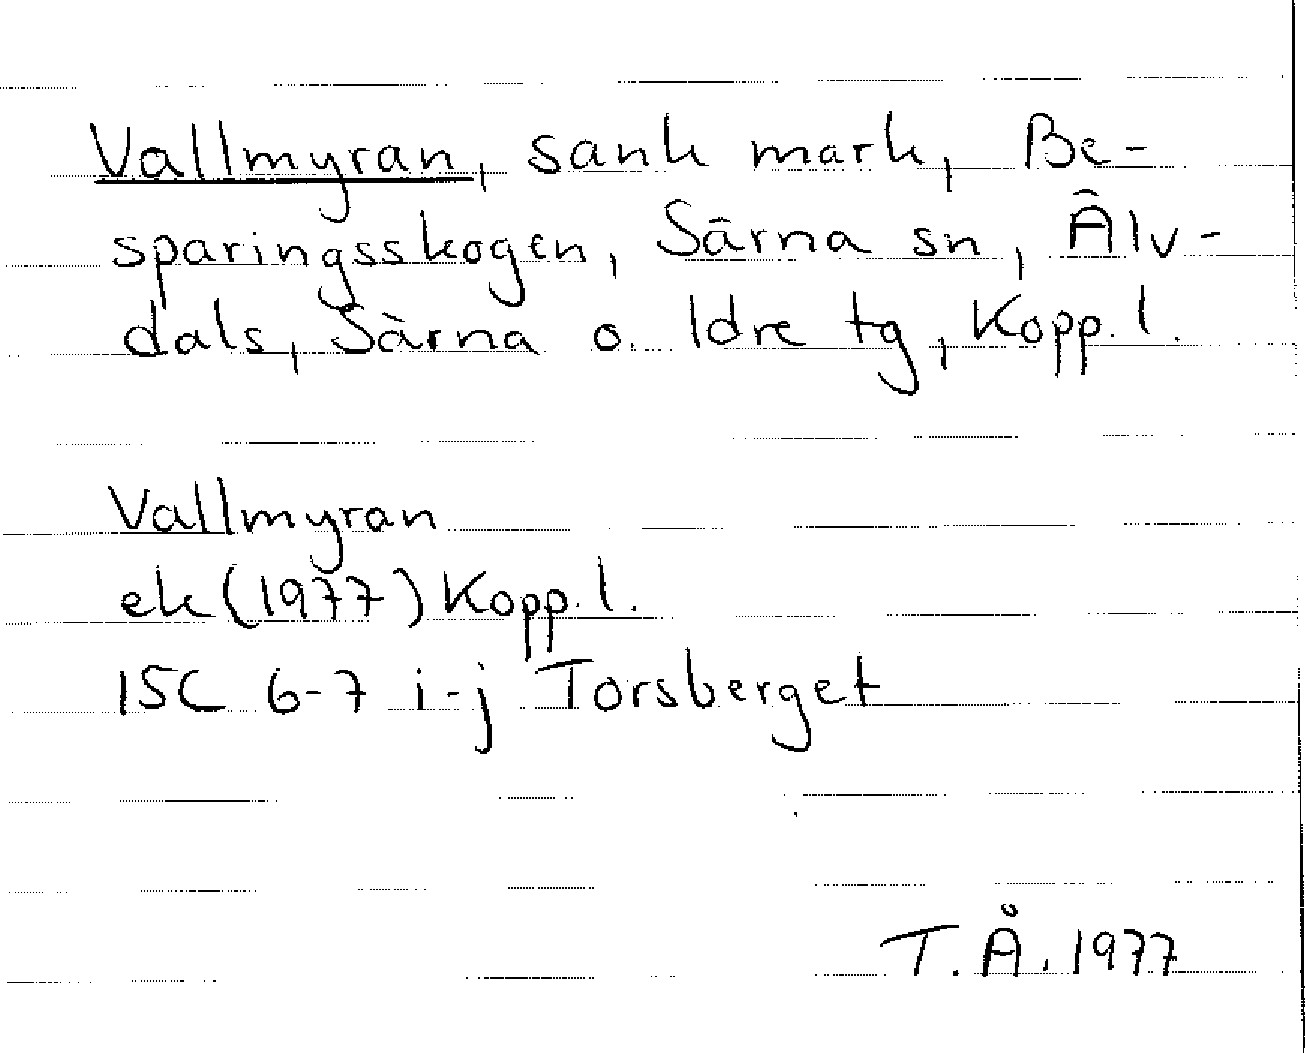 Vallmyran, sank mark, Be-
sparingsskogen, Särna sn, Älv-
dals, Särna o. Idre tg, Kopp. l.
Vallmyran
ek (1977) Kopp. l.
15C 6-7 i-j Torsberget
T. Å. 1977